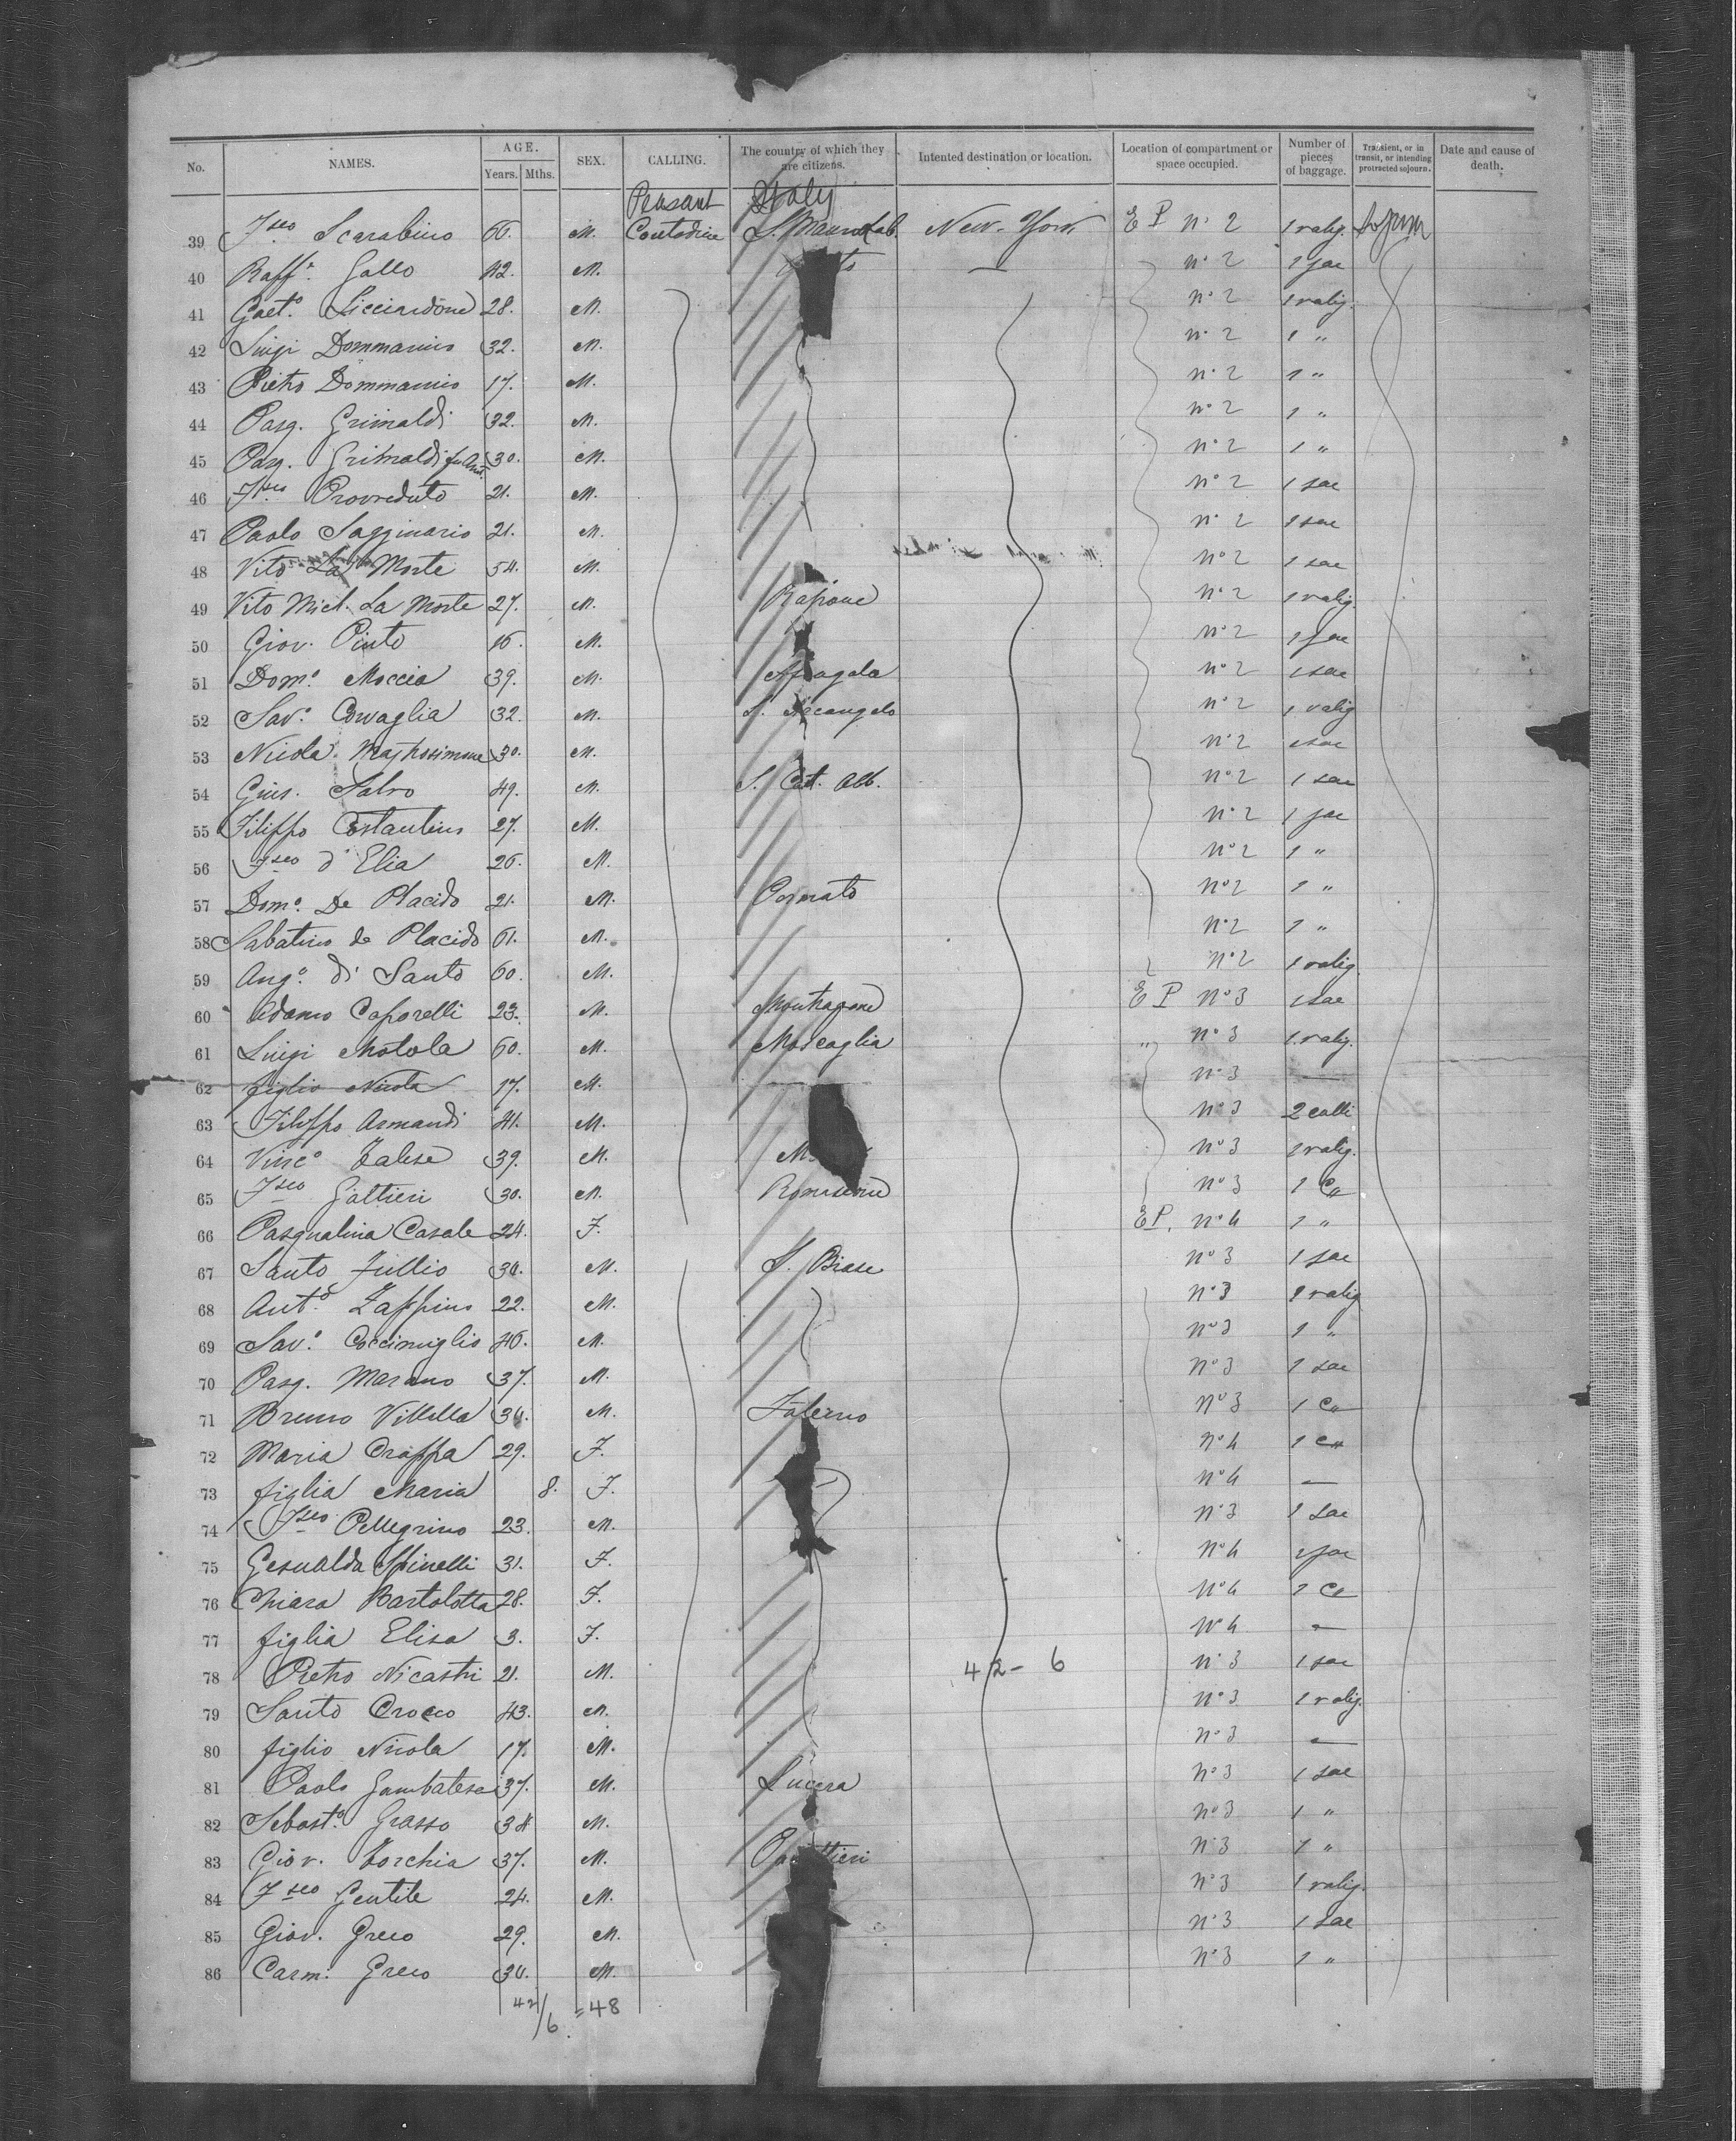 No. NAMES. AGE. Years. Mths. SEX. CALLING. The country of which they are citizens. Intented destination or location. Location of compartment or space occupied. Number of pieces of baggage. Transient, or in transit, or intending protracted sojourn. Date and cause of death.
Peasant Italy
39 Fseo Scarabino 66. M. Contadine S. Mauro New-York E P n° 2 1 valig. Sojourn
40 Raffe. Gallo 42. M. — n° 2 1 sac
41 Gaet.o Licciardone 28. M. n° 2 1 valig.
42 Luigi Dommarius 32. M. n° 2 1 "
43 Pietro Dommarius 17. M. n° 2 1 "
44 Pasq. Grimaldi 32. M. n° 2 1 "
45 Pasq. Grimaldi fu Ant. 30. M. n° 2 1 "
46 Fseo Provveduto 21. M. n° 2 1 sac
47 Paolo Sagginario 21. M. n° 2 1 sac
48 Vito La Morte 54. M. n° 2 1 sac
49 Vito Mich. La Morte 27. M. Rapone n° 2 1 valig.
50 Giov. Pinto 16. M. n° 2 1 sac
51 Dom.o Moccia 39. M. Afragola n° 2 1 sac
52 Sav.o Corvaglia 32. M. S. Arcangelo n° 2 1 valig
53 Nicola Mastrosimone 30. M. n° 2 1 sac
54 Gius. Salvo 49. M. S. Cat. Alb. n° 2 1 sac
55 Filippo Costantino 27. M. n° 2 1 sac
56 Fseo d'Elia 26. M. n° 2 1 "
57 Dom.o De Placido 21. M. n° 2 1 "
58 Sabatino de Placido 61. M. n° 2 1 "
59 Ang.o di Santo 60. M. n° 2 1 valig.
60 Adamo Caporelli 23. M. E P n° 3 1 sac
61 Luigi Motola 60. M. " n° 3 1 valig.
62 figlio Nicola 17. M. n° 3 —
63 Filippo Armandi 41. M. n° 3 2 colli
64 Vinc.o Talese 39. M. n° 3 1 valig.
65 Fseo Galtieri 30. M. n° 3 1 Ca
66 Pasqualina Casale 24. F. E P. n° 4 1 "
67 Santo Jullio 30. M. S. Biase n° 3 1 sac
68 Ant.o Zappino 22. M. n° 3 1 valig
69 Sav.o Coccimiglio 46. M. n° 3 1 "
70 Pasq. Marano 37. M. n° 3 1 sac
71 Bruno Villella 34. M. Falerno n° 3 1 Ca
72 Maria Crappa 29. F. n° 4 1 Ca
73 figlia Maria 8. F. n° 4 —
74 Fseo Pellegrino 23. M. n° 3 1 sac
75 Gesualda Spinelli 31. F. n° 4 1 sac
76 Chiara Bartolotta 28. F. n° 4 1 Ca
77 figlia Elisa 3. F. n° 4 —
78 Pietro Nicastri 21. M. 42-6 n° 3 1 sac
79 Santo Crocco 43. M. n° 3 1 valig.
80 figlio Nicola 17. M. n° 3 —
81 Paolo Gambatese 37. M. Lucera n° 3 1 sac
82 Sebast.o Grasso 38 M. n° 3 1 "
83 Giov. Torchia 37. M. n° 3 1 "
84 Fseo Gentile 24. M. n° 3 1 valig.
85 Giov. Greco 29. M. n° 3 1 sac
86 Carm. Greco 30. M. n° 3 1 "
42/6 = 48